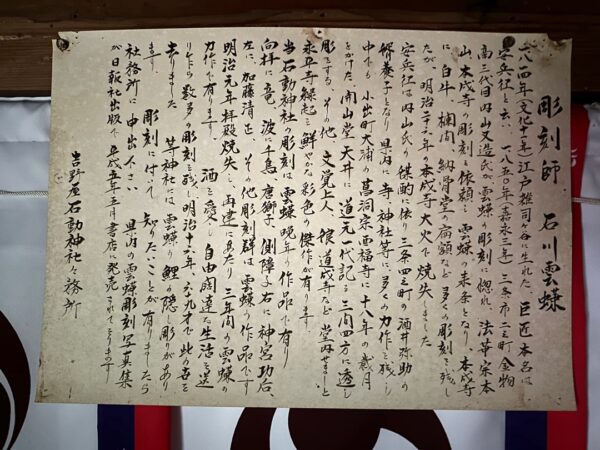 彫刻師 石川雲蝶
一八一四年(文化十一年)江戸雑司ヶ谷に生れた、巨匠本名は
安兵衛と云い 一八五〇年(嘉永三年) 三条市二之町金物
商三代目内山又造氏が雲蝶の彫刻に惚れ 法華宗本
山、本成寺の彫刻を依頼し 雲蝶の来条となり、本成寺
に、白牛、欄間、納骨堂の扁額など多くの彫刻を残し
たが、明治二十六年の本成寺大火で焼失しました
安兵衛は内山氏の媒酌に依り三条四之町の酒井弥助の
婿養子となり 県内に寺神社等に多くの力作を残し
中でも 小出町大浦の曹洞宗西福寺に十八年の歳月
をかけた 開山堂天井に道元一代記を三間四方に透し
彫をする その他 文覚上人 俍道戒寺など 堂内せましと
永平寺縁起 鮮やかな彩色の傑作が有ります
当石動神社の彫刻は雲蝶晩年の作品で有り
向拝に竜、波に千鳥、唐獅子、側障子右に神宮功后、
左に、加藤清正、その他彫刻群は雲蝶の作品です
明治元年拝殿焼失し、再建にあたり三年間の雲蝶の
力作で有ります 酒を愛し 自由闊達な生活を送
り乍ら 数多の彫刻を残し明治十六年、六九才で此の世を
去りました 等神社には 雲蝶の鯉の隠し彫があり
ます。 彫刻に付いて 知りたいことが有りましたら
社務所に申出下さい 県内の雲蝶彫刻写真集
が日報社出版で平成五年五月書店に発売されております
吉野屋石動神社々務所